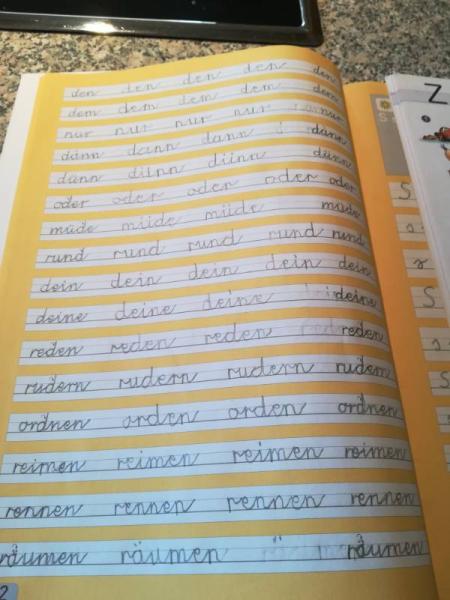 den den den den den
dem dem dem dem dem
nur nur nur nur
dann dann dann dann
dünn dünn dünn dünn
oder oder oder oder oder
müde müde müde müde
rund rund rund rund rund
dein dein dein dein dein
deine deine deine deine
reden reden reden reden
rudern rudern rudern rudern
ordnen orden orden ordnen
reimen reimen reimen reimen
rennen rennen rennen rennen
räumen räumen räumen
2
Z
S
S
S